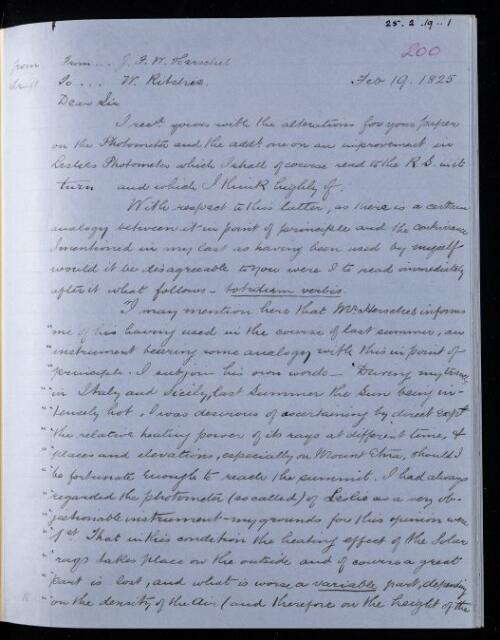 25.2.19..1
200
from From... J. F. W. Herschel
draft To... W. Ritchie. Feb 19. 1825
Dear Sir
I recd. yours with the alterations for your paper
on the Photometer and the addt one on an improvement in
Leslie's Photometer which I shall of course read to the R.S. in its
turn and which I think highly of.
With respect to this latter, as there is a certain
analogy between it in point of principle and the contrivance
I mentioned in my last as having been used by myself
would it be disagreeable to you were I to read immediately
after it what follows – totidem verbis.
"I may mention here that Mr. Herschel informs
"me of his having used in the course of last summer, an
"instrument bearing some analogy with this in point of
"principle. I subjoin his own words – "During my travels
"in Italy and Sicily last Summer the Sun being in-
"tensely hot, I was desirous of ascertaining by direct expt
"the relative heating power of its rays at different times, &
"places and elevations, especially on Mount Etna, should I
"be fortunate enough to reach the summit. I had always
"regarded the photometer (so called) of Leslie as a very ob-
"jectionable instrument – my grounds for this opinion were
"1st. That in this condition the heating effect of the Solar
"rays takes place on the outside and of course a great
"part is lost, and what is worse, a variable part, depending
"on the density of the Air (and therefore on the height of the